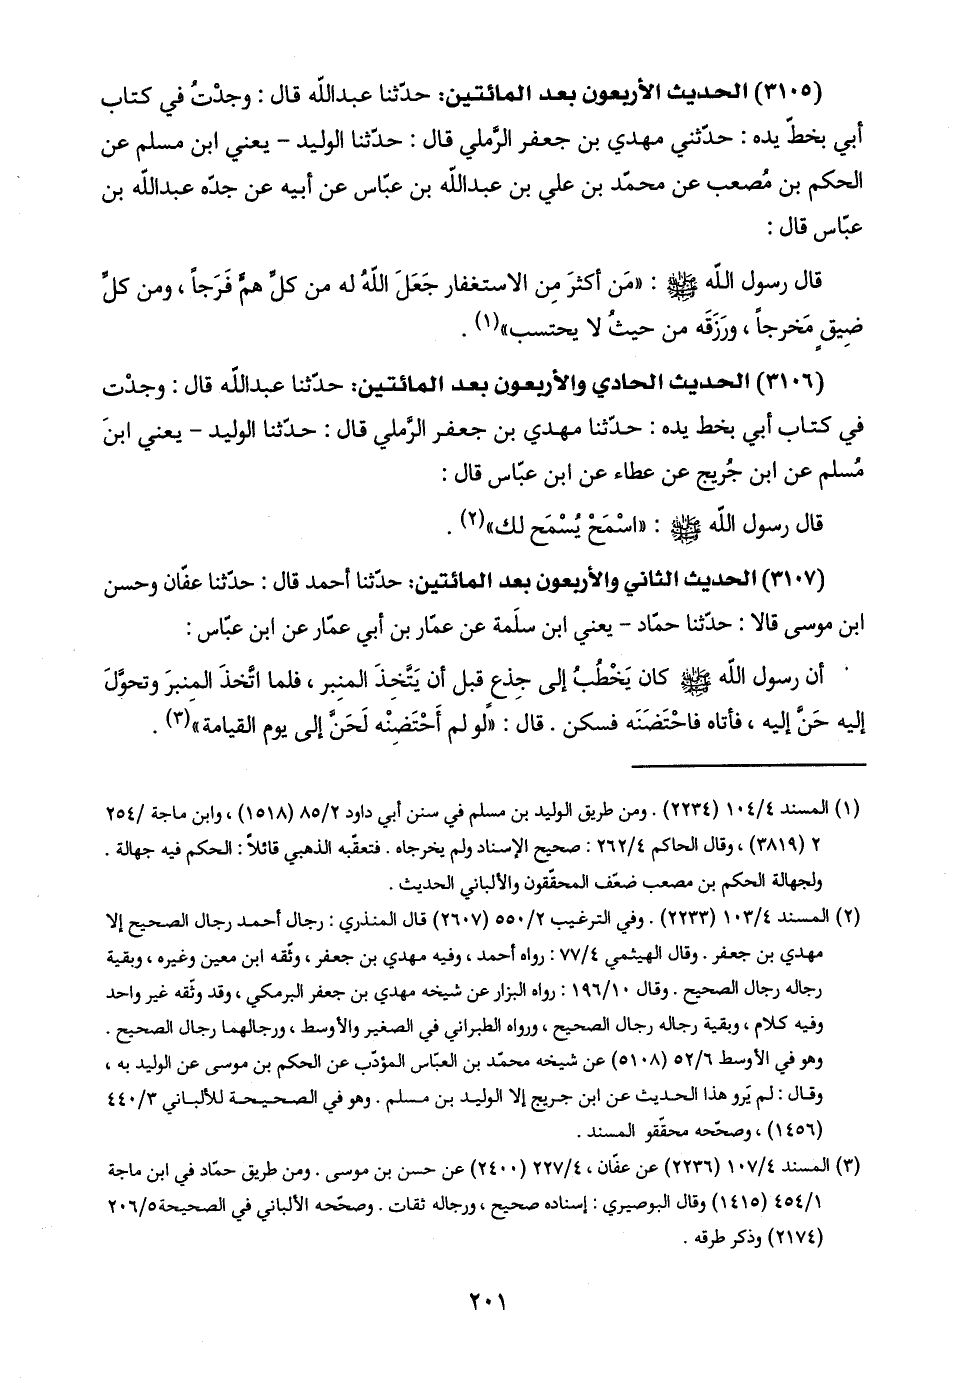 (٣١٠٥) الحديث الأربعون بعد المائتين: حدّثنا عبدالله قال : وجدْتُ في كتاب
أبي بخطّ يده : حدّثني مهدي بن جعفر الرَّملي قال : حدّثنا الوليد – يعني ابن مسلم عن
الحكم بن مُصعب عن محمّد بن علي بن عبدالله بن عبّاس عن أبيه عن جدّه عبدالله بن
عبّاس قال :
قال رسول الله ﷺ : «مَن أكثرَ مِن الاستغفار جَعَلَ اللهُ له من كلِّ همٍّ فَرَجاً ، ومن كلِّ
ضيقٍ مَخرجاً ، ورَزَقَه من حيثُ لا يحتسب»(١) .
(٣١٠٦) الحديث الحادي والأربعون بعد المائتين: حدّثنا عبدالله قال : وجدْت
في كتاب أبي بخط يده : حدّثنا مهدي بن جعفر الرَّملي قال : حدّثنا الوليد – يعني ابنَ
مُسلم عن ابن جُريج عن عطاء عن ابن عبّاس قال :
قال رسول الله ﷺ : «اسْمَحْ يُسْمَح لك»(٢) .
(٣١٠٧) الحديث الثاني والأربعون بعد المائتين: حدّثنا أحمد قال : حدّثنا عفّان وحسن
ابن موسى قالا : حدّثنا حمّاد – يعني ابن سلَمة عن عمّار بن أبي عمّار عن ابن عبّاس :
أن رسول الله ﷺ كان يَخْطُبُ إلى جِذعٍ قبل أن يَتَّخِذَ المنبر ، فلما اتَّخذَ المنبرَ وتحوَّلَ
إليه حَنَّ إليه ، فأتاه فاحْتَضَنَه فسكن . قال : «لو لم أَحْتَضِنْه لَحَنَّ إلى يوم القيامة»(٣) .
(١) المسند ١٠٤/٤ (٢٢٣٤) . ومن طريق الوليد بن مسلم في سنن أبي داود ٨٥/٢ (١٥١٨) ، وابن ماجة /٢٥٤
٢ (٣٨١٩) ، وقال الحاكم ٢٦٢/٤ : صحيح الإسناد ولم يخرجاه . فتعقّبه الذهبي قائلاً : الحكم فيه جهالة .
ولجهالة الحكم بن مصعب ضعّف المحقّقون والألباني الحديث .
(٢) المسند ١٠٣/٤ (٢٢٣٣) . وفي الترغيب ٥٥٠/٢ (٢٦٠٧) قال المنذري : رجال أحمد رجال الصحيح إلا
مهدي بن جعفر . وقال الهيثمي ٧٧/٤ : رواه أحمد ، وفيه مهدي بن جعفر ، وثّقه ابن معين وغيره ، وبقية
رجاله رجال الصحيح . وقال ١٩٦/١٠ : رواه البزار عن شيخه مهدي بن جعفر البرمكي ، وقد وثّقه غير واحد
وفيه كلام ، وبقية رجاله رجال الصحيح ، ورواه الطبراني في الصغير والأوسط ، ورجالهما رجال الصحيح .
وهو في الأوسط ٥٢/٦ (٥١٠٨) عن شيخه محمّد بن العبّاس المؤدّب عن الحكم بن موسى عن الوليد به ،
وقال : لم يَرو هذا الحديث عن ابن جريج إلا الوليد بن مسلم . وهو في الصحيحة للألباني ٤٤٠/٣
(١٤٥٦) ، وصحّحه محقّقو المسند .
(٣) المسند ١٠٧/٤ (٢٢٣٦) عن عفّان ، ٢٢٧/٤ (٢٤٠٠) عن حسن بن موسى . ومن طريق حمّاد في ابن ماجة
٤٥٤/١ (١٤١٥) وقال البوصيري : إسناده صحيح ، ورجاله ثقات . وصحّحه الألباني في الصحيحة ٢٠٦/٥
(٢١٧٤) وذكر طرقه .
٢٠١